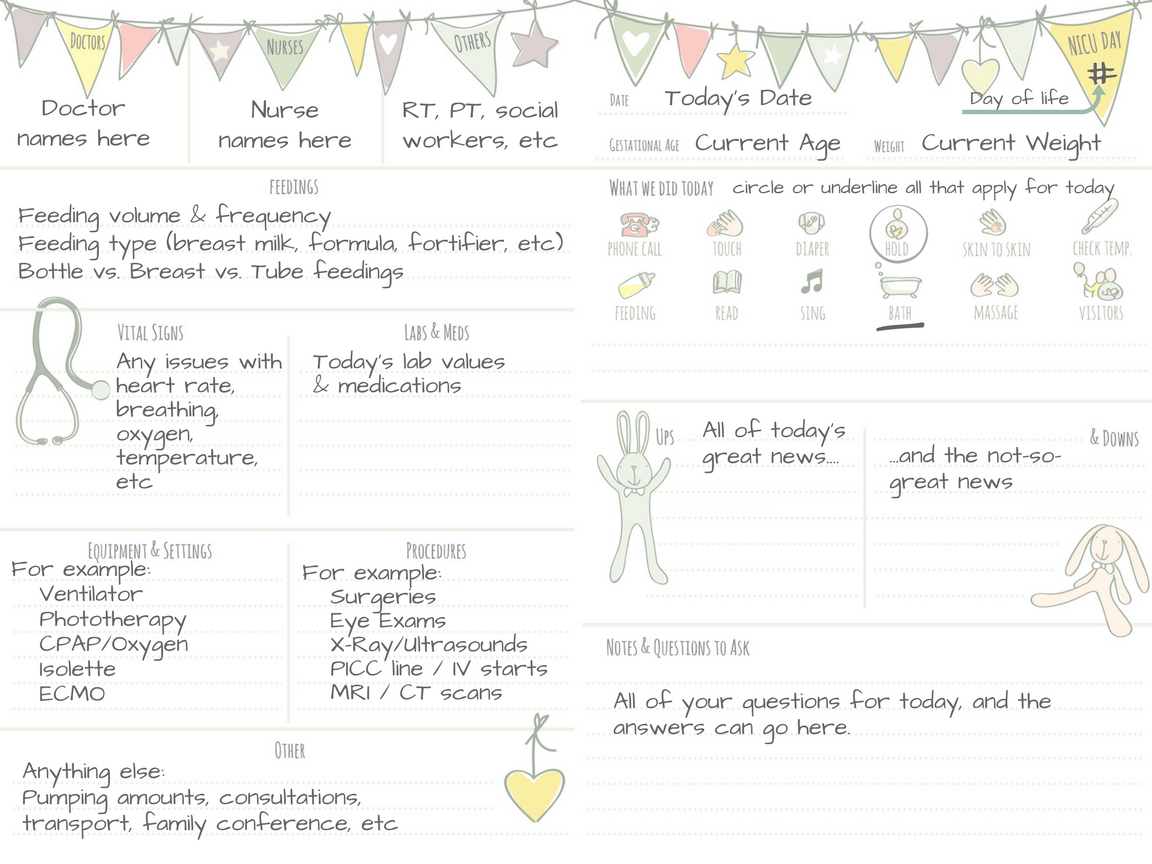 DOCTORS
NURSES
OTHERS
Doctor
names here
Nurse
names here
RT, PT, social
workers, etc
FEEDINGS
Feeding volume & frequency
Feeding type (breast milk, formula, fortifier, etc)
Bottle vs. Breast vs. Tube feedings
VITAL SIGNS
Any issues with
heart rate,
breathing,
oxygen,
temperature,
etc
LABS & MEDS
Today's lab values
& medications
EQUIPMENT & SETTINGS
For example:
Ventilator
Phototherapy
CPAP/Oxygen
Isolette
ECMO
PROCEDURES
For example:
Surgeries
Eye Exams
X-Ray/Ultrasounds
PICC line / IV starts
MRI / CT scans
OTHER
Anything else:
Pumping amounts, consultations,
transport, family conference, etc
NICU DAY
#
DATE Today's Date
Day of life
GESTATIONAL AGE Current Age
WEIGHT Current Weight
WHAT WE DID TODAY circle or underline all that apply for today
PHONE CALL
TOUCH
DIAPER
HOLD
SKIN TO SKIN
CHECK TEMP.
FEEDING
READ
SING
BATH
MASSAGE
VISITORS
UPS
All of today's
great news....
& DOWNS
...and the not-so-
great news
NOTES & QUESTIONS TO ASK
All of your questions for today, and the
answers can go here.